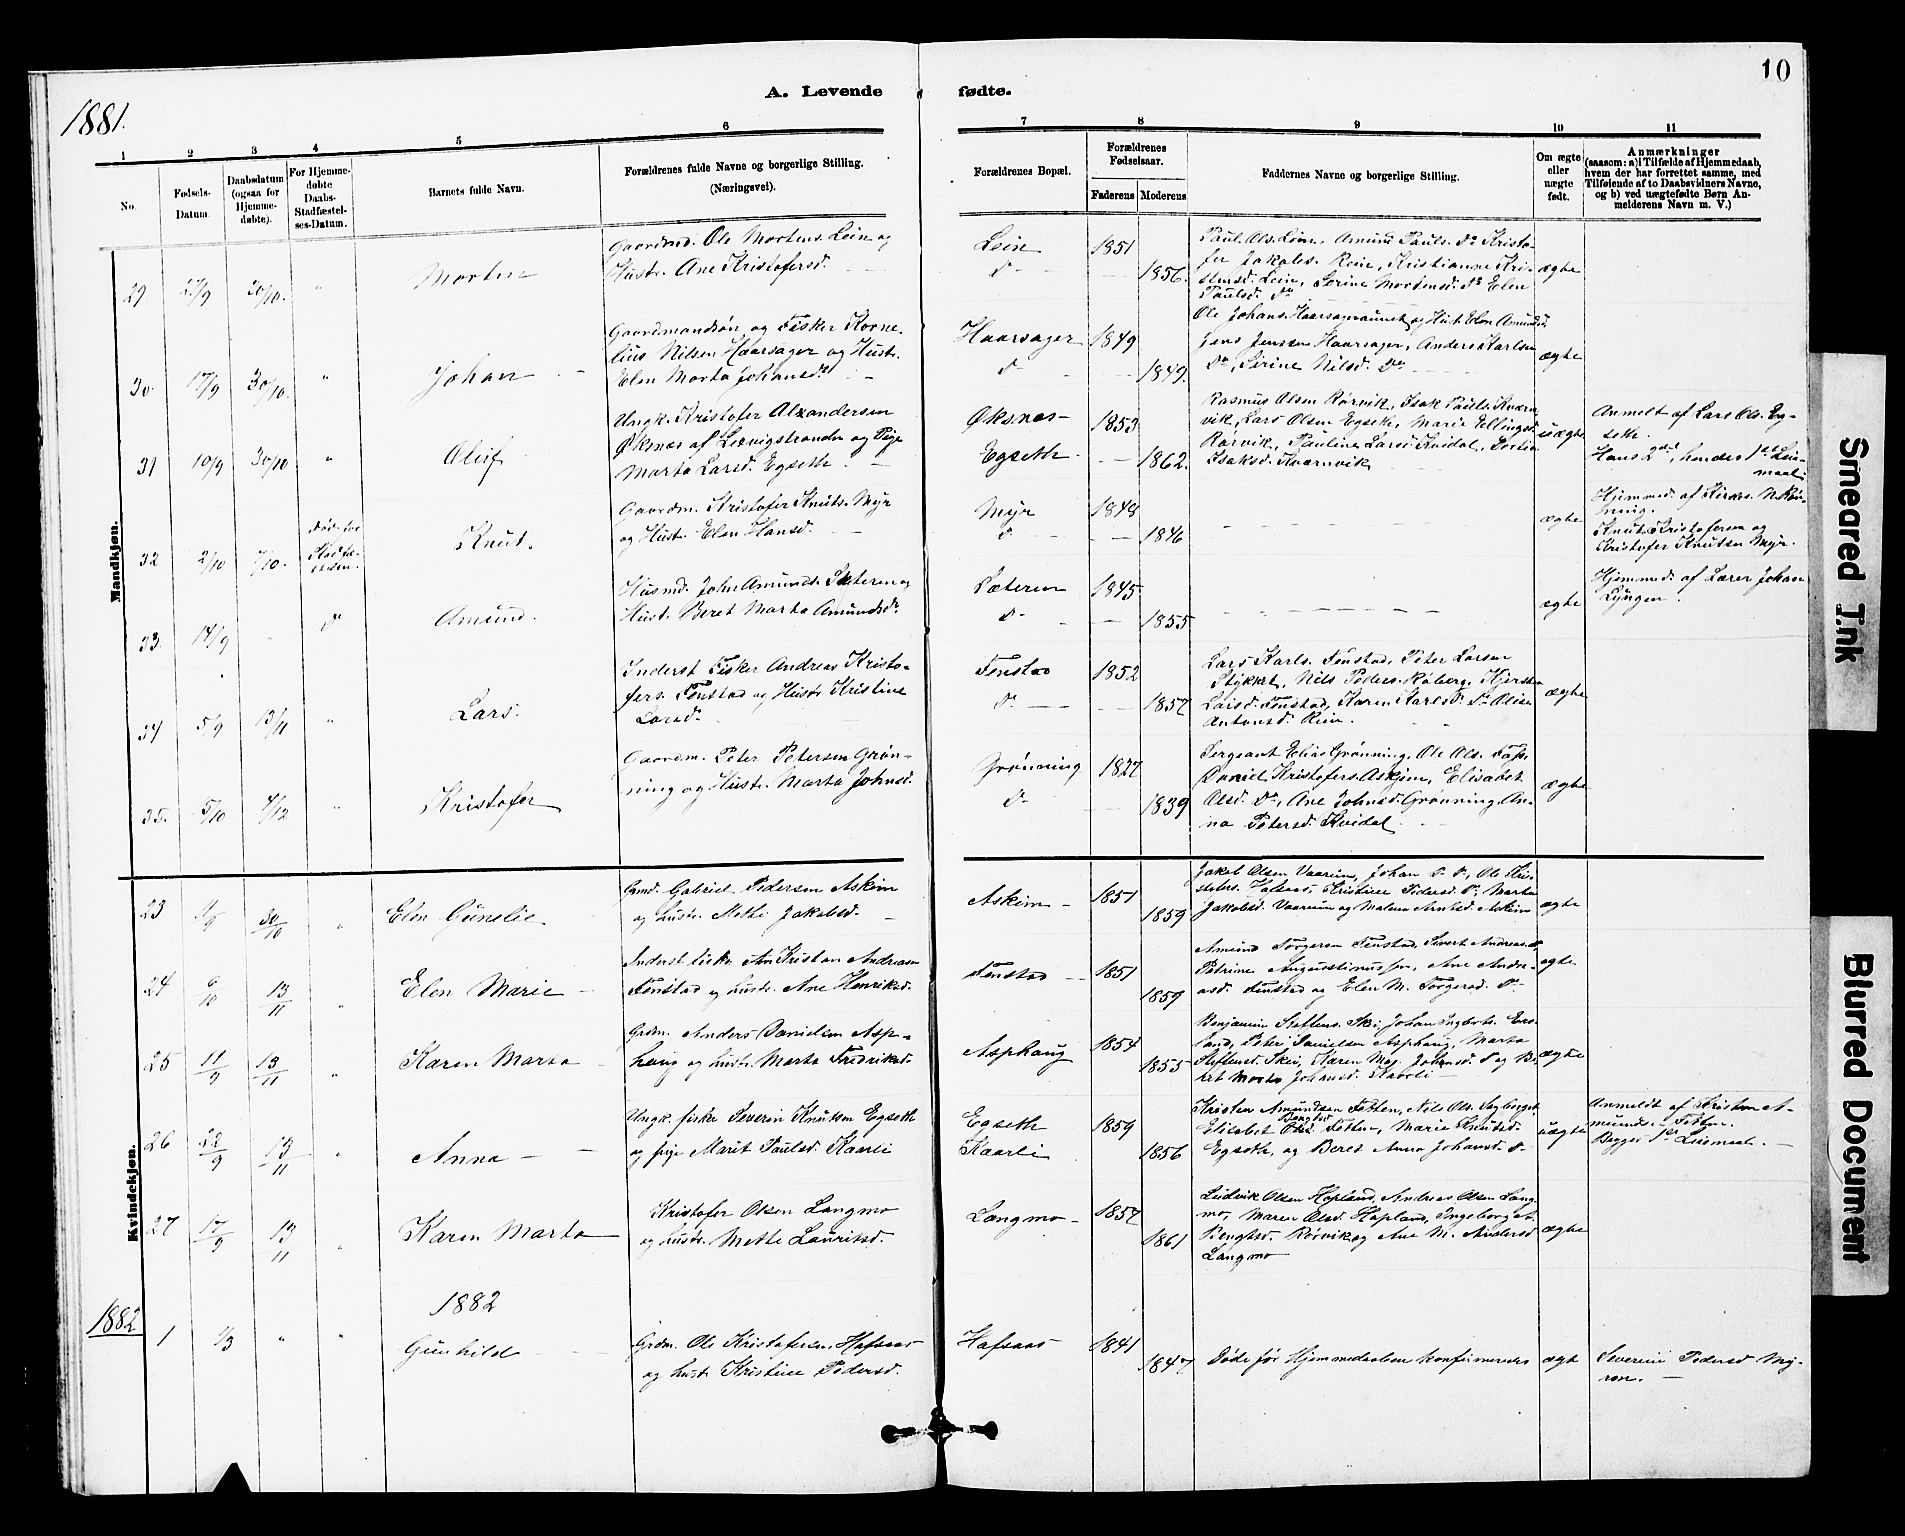 10
A. Levende fødte.
1881.
1 2 3 4 5 6 7 8 9 10 11
No.
Fødsels-
Datum.
Daabsdatum
(ogsaa for
Hjemme-
døbte).
For Hjemme-
døbte
Daabs-
Stadfæstel-
ses-Datum.
Barnets fulde Navn.
Forældrenes fulde Navne og borgerlige Stilling.
(Næringsvei).
Forældrenes Bopæl.
Forældrenes
Fødselsaar.
Faderens Moderens
Faddernes Navne og borgerlige Stilling.
Om ægte
eller
uægte
født.
Anmærkninger
(saasom: a) i Tilfælde af Hjemmedaab,
hvem der har forrettet samme, med
Tilføiende af to Daabsvidners Navne,
og b) ved uægtefødte Børn An-
melderens Navn m. V.)
Mandkjøn.
29 27/9 30/10. " Morten
Gaardmd. Ole Mortens. Lein og
Hustr. Ane Kristofersd.
Lein 1851
Do 1856.
Paul Ols. Lein, Amund Pauls. Do Kristo-
fer Jakobs. Rein, Kristianne Kri-
stensd. Lein, Serine Mortensd. Do Elen
Paulsd. Do
ægte
30. 17/9 30/10. " Johan
Gaardmandsøn og Fisker Korne-
lius Nilsen Haarsager og Hustr.
Elen Marta Johansd.
Haarsager 1849
Do 1849.
Ole Johans. Haarsagraunet og Hust. Elen Amundsd.
Jens Jenssen Haarsager, Anders Karlsen
Do, Sirine Nilsd. Do
ægte
31 10/9 30/10 " Oluf
Ungk. Kristofer Alexandersen
Øksnæs af Lexvigstranden og Pige
Marta Larsd. Egseth.
Øksnæs- 1853
Egseth 1862.
Rasmus Olsen Rørvik, Isak Pauls. Kværn
vik, Lars Olsen Egseth, Marie Ellingsd.
Rørvik, Pauline Larsd. Kvidal,
Isaksd. Kværnvik
uægte
Anmelt af Lars Ols. Eg-
seth.
Hans 2det, hendes 1ste Leier-
maal
32 2/10 7/10.
Død før
Stadfæ-
stelsen.
Knut.
Gaardm. Kristofer Knuts. Myr
og Hust. Elen Hansd.
Myr 1848
Do 1846
ægte
Hjemmed. af Kirkes.
Knut Kristofersen og
Kristofer Knutsen Myr.
33. 14/9 Do Amund.
Husmd. John Amunds. Sæteren og
Hust. Beret Marta Amundsd.
Sæteren 1845
Do 1855
ægte
Hjemmed. af Lærer Johan
Lyngen.
34 5/9 13/11 " Lars.
Inderst Fisker Andreas Kristo-
fers. Fenstad og Hustr. Kristine
Larsd.
Fenstad 1852
Do 1857
Lars Karls. Fenstad, Peter Larsen
Stykket, Nils Peders. Råberg, Kjersti
Larsd. Fenstad, Karen Karlsd. Do Olise
Antonsd. Rein.
ægte
35. 5/10 4/12 " Kristofer
Gaardm. Peter Petersen Grøn-
ning og Hustr. Marta Johnsd.
Grønning 1827
Do 1839
Sergeant Elias Grønning, Ole Ols.
Daniel Kristofers. Askjem, Elisabet
Olsd. Do, Ane Johnsd. Grønning, An-
na Petersd. Kvidal.
ægte
Kvindekjøn.
23 1/9 30/10 " Elen Gunelie
Grmd. Gabriel Pedersen Askim
og hustr. Mette Jakobsd.
Askim 1851
1859
Jakob Olsen Vaarum, Johan D. D., Ole Kri-
stofers. Hafsaas, Kristine Pedersd. Do, Marta
Jakobsd. Vaarum og Malene Arntsd. Askim
ægte
24 6/10 13/11 " Elen Marie
Inderst fisker Kristian Andreasen
Fenstad og hustr. Ane Henriksd.
Fenstad 1851
1859
Amund Torgersen Fenstad, Sivert Andreas.
Petrine Augustinussen, Ane Andre-
asd. Fenstad og Elen M. Torgersd. Do
ægte
25 11/9 13/11 " Karen Marta
Grdm. Anders Danielsen Asp-
haug og hustr. Marta Fredriksd.
Asphaug 1854
1855
Benjamin Steffens. Skei, Johan Ingbrts.
land, Peter Danielsen Asphaug, Marta
Steffensd. Skei, Karen Maj. Johansd. Do og Be-
ret Marta Johansd. Kaarli
ægte
26 22/9 13/11 " Anna
Ungk. fisker Severin Knutsen Egseth
og pige Marit Paulsd. Kaarli
Egseth 1859
Kaarli 1856
Kristen Amundsen Fetten, Nils Ols.
Elisabet Fetten, Marie Knutsd.
Egseth, og Beret Anna Johansd. Do
uægte
Anmeldt af Kristen A-
munds. Fetten.
Begges 1ste Leiermaal.
27 17/9 13/11 " Karen Marta
Kristofer Olsen Langmo
og hustr. Mette Lauritsd.
Langmo 1857
1861
Ludvik Olsen Hopland, Andreas Olsen Lang-
mo, Maren Olsd. Hopland, Ingeborg
Bengtsd. Rørvik og Ane M. Andersd.
Langmo
ægte
1882
1882
1 1/3 " " Gunhild
Grdm. Ole Kristofersen Hafsaas
og hustr. Kristine Pedersd.
Hafsaas 1841
1847
Døde før Hjemmedaaben konfirmeredes
ægte
Severine Pedersd. My-
ren.
Smeared Ink
Blurred Document